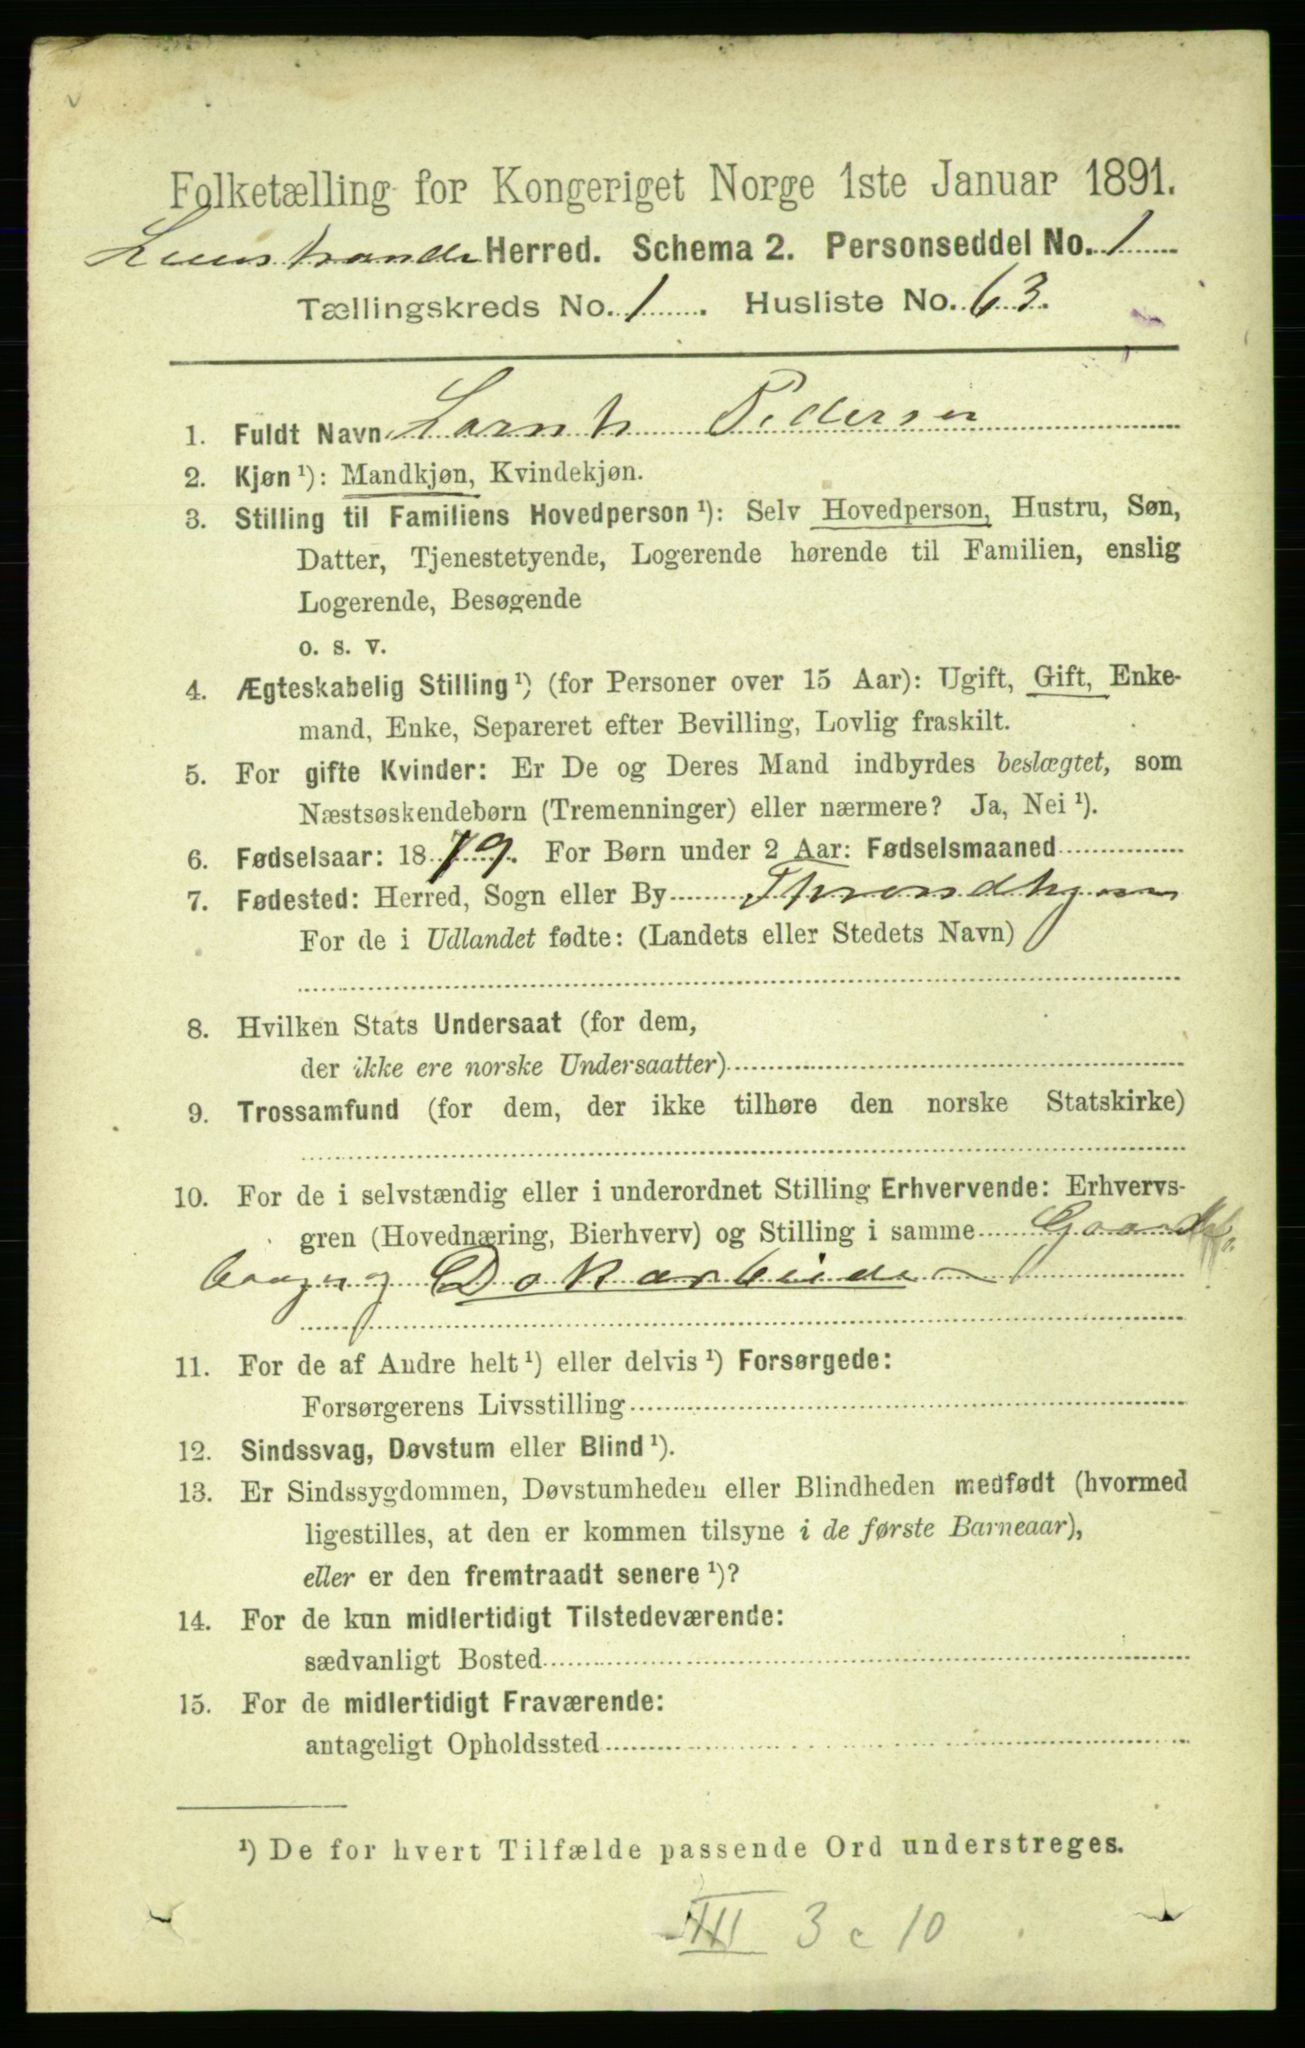 Folketælling for Kongeriget Norge 1ste Januar 1891.
Herred. Schema 2. Personseddel No. 1
Tællingskreds No. 1. Husliste No. 63.
1. Fuldt Navn Pedersen
2. Kjøn ¹): Mandkjøn, Kvindekjøn.
3. Stilling til Familiens Hovedperson ¹): Selv Hovedperson, Hustru, Søn,
Datter, Tjenestetyende, Logerende hørende til Familien, enslig
Logerende, Besøgende
o. s. v.
4. Ægteskabelig Stilling ¹) (for Personer over 15 Aar): Ugift, Gift, Enke-
mand, Enke, Separeret efter Bevilling, Lovlig fraskilt.
5. For gifte Kvinder: Er De og Deres Mand indbyrdes beslægtet, som
Næstsøskendebørn (Tremenninger) eller nærmere? Ja, Nei ¹).
6. Fødselsaar: 1879. For Børn under 2 Aar: Fødselsmaaned
7. Fødested: Herred, Sogn eller By Throndhjem
For de i Udlandet fødte: (Landets eller Stedets Navn)
8. Hvilken Stats Undersaat (for dem,
der ikke ere norske Undersaatter)
9. Trossamfund (for dem, der ikke tilhøre den norske Statskirke)
10. For de i selvstændig eller i underordnet Stilling Erhvervende: Erhvervs-
gren (Hovednæring, Bierhverv) og Stilling i samme
Dokarbeider
11. For de af Andre helt ¹) eller delvis ¹) Forsørgede:
Forsørgerens Livsstilling
12. Sindssvag, Døvstum eller Blind ¹).
13. Er Sindssygdommen, Døvstumheden eller Blindheden medfødt (hvormed
ligestilles, at den er kommen tilsyne i de første Barneaar),
eller er den fremtraadt senere ¹)?
14. For de kun midlertidigt Tilstedeværende:
sædvanligt Bosted
15. For de midlertidigt Fraværende:
antageligt Opholdssted
¹) De for hvert Tilfælde passende Ord understreges.
3 c 10